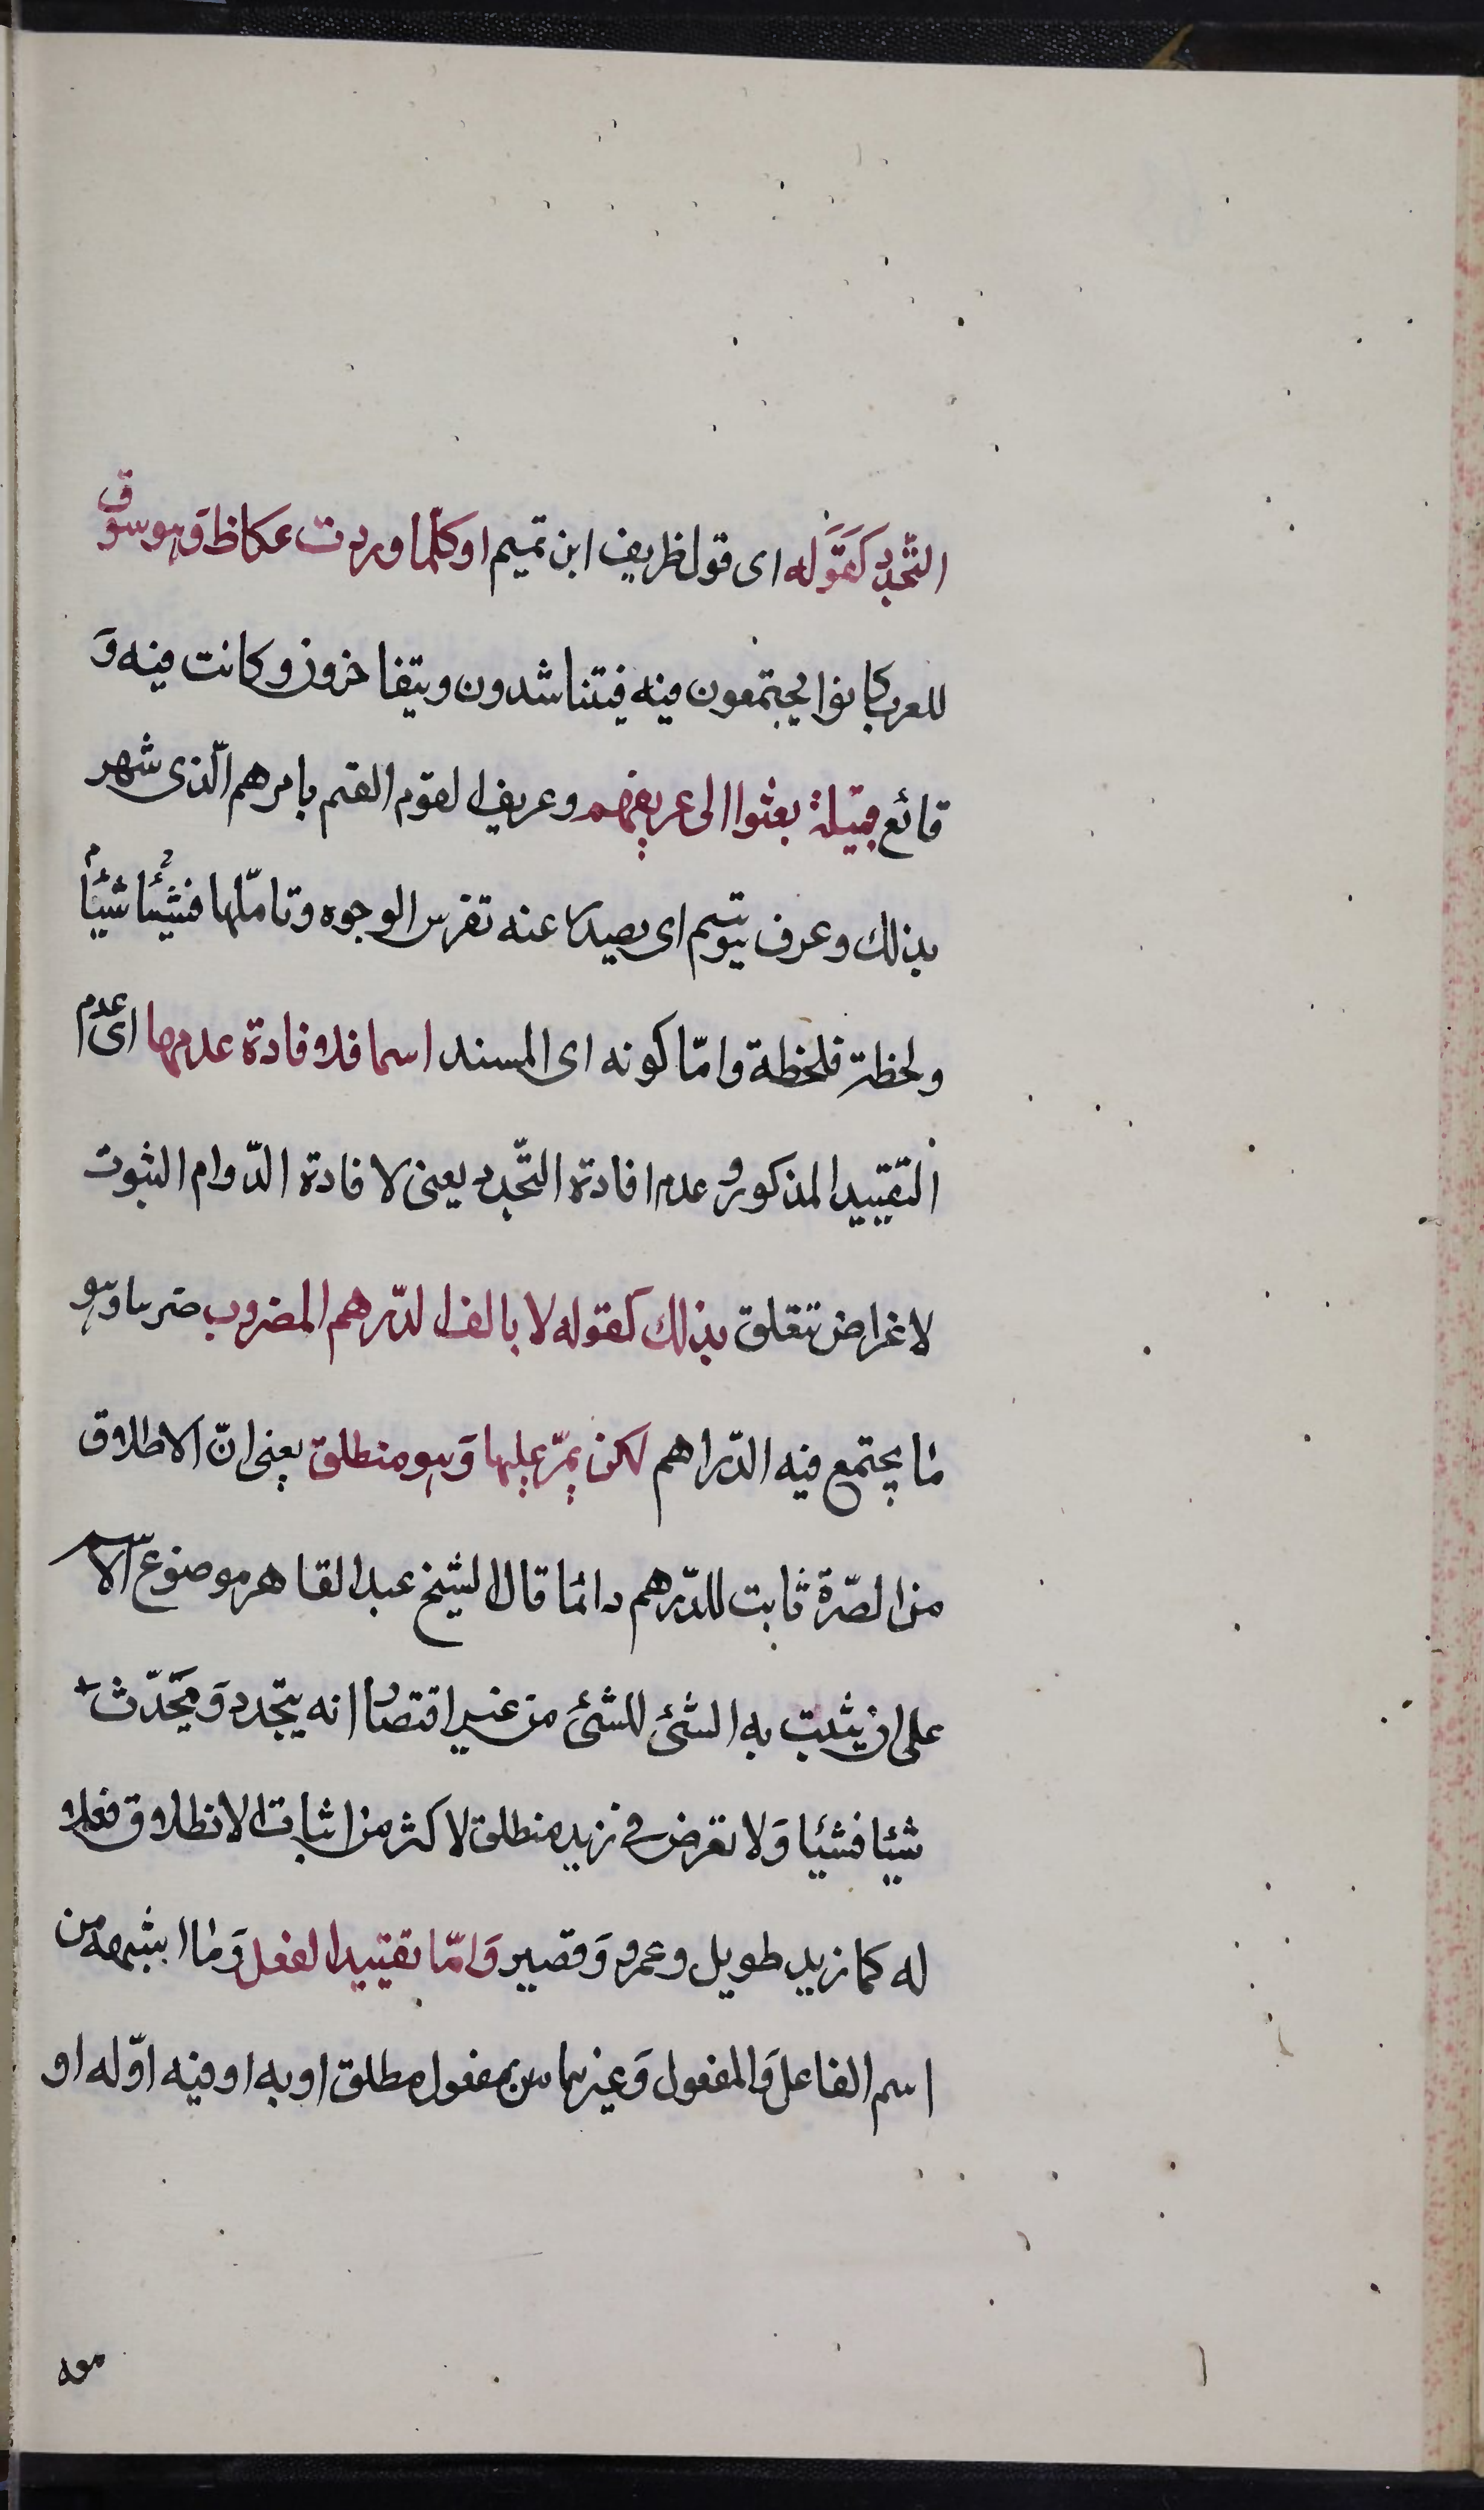 التّجدد كقوله اى قول ظريف ابن تميم او كلّما وردت عكاظ وهو سوق
للعرب كانوا يجتمعون فيه فيتناشدون ويتفاخرون وكانت فيه و
قائع قبيلة بعثوا الى عريفهم وعريف القوم القيم بامرهم الّذى شهر
بذلك وعرف يتوسم اى يصدر عنه تفرس الوجوه وتاملّها فشيئا شيئا
ولحظة فلحظة وامّا كونه اى المسند اسما فلافادة عدمها اى عدم
التقييد المذكور وعدم افادة التّجدد يعنى لافادة الدّوام الثبوت
لاغراض تتعلق بذلك كقوله لا بالف الدّرهم المضروب صرسا وهو
ما يجتمع فيه الدّراهم لكن يمرّ عليها وهو منطلق يعنى انّ الاطلاق
من الصّرة ثابت للدّرهم دائما قال الشيخ عبد القاهر موضوع الاسم
على ان يثبت به الشئ للشئ من غير اقتضاا انه يتجدد ويحّدث
شيئا فشيئا ولا تعرض فى زيد منطلق لاكثر من اثبات الانطلاق فعلا
له كما زيد طويل وعمرو وقصير وامّا تقييد الفعل وما ابشبهه من
اسم الفاعل والمفعول وغيرهما من بمفعول مطلق او به او فيه اوّله او
معه